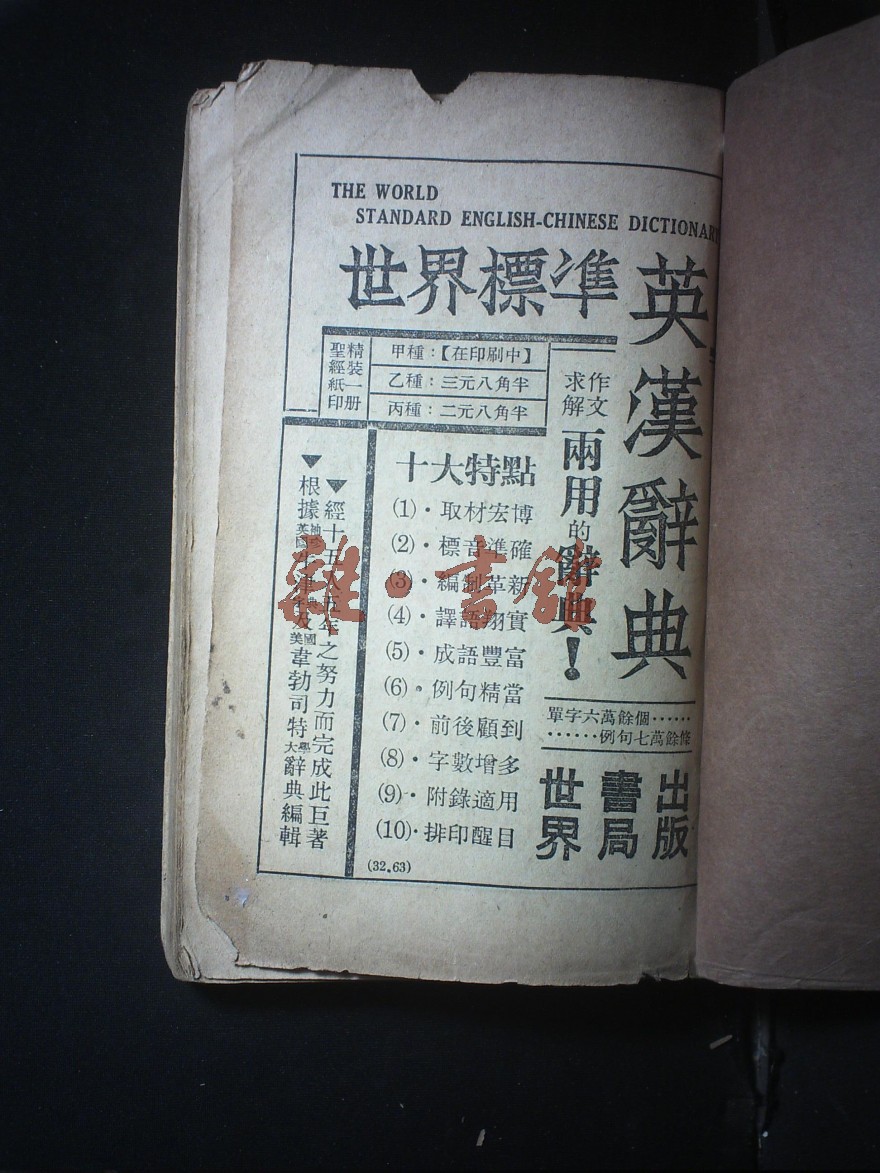 THE WORLD
STANDARD ENGLISH-CHINESE DICTIONARY
世界標準
英漢辭典
精裝一册
聖經紙印
甲種：【在印刷中】
乙種：三元八角半
丙種：二元八角半
作文
求解
兩用的辭典！
單字六萬餘個……
……例句七萬餘條
世界書局出版
十大特點
(1)·取材宏博
(2)·標音準確
(3)·編制革新
(4)·譯語翔實
(5)·成語豐富
(6)·例句精當
(7)·前後顧到
(8)·字數增多
(9)·附錄適用
(10)·排印醒目
▼經十五人五年之努力而完成此巨著
▼根據英國牛津及美國韋勃司特大學辭典編輯
(32.63)
雜·書館